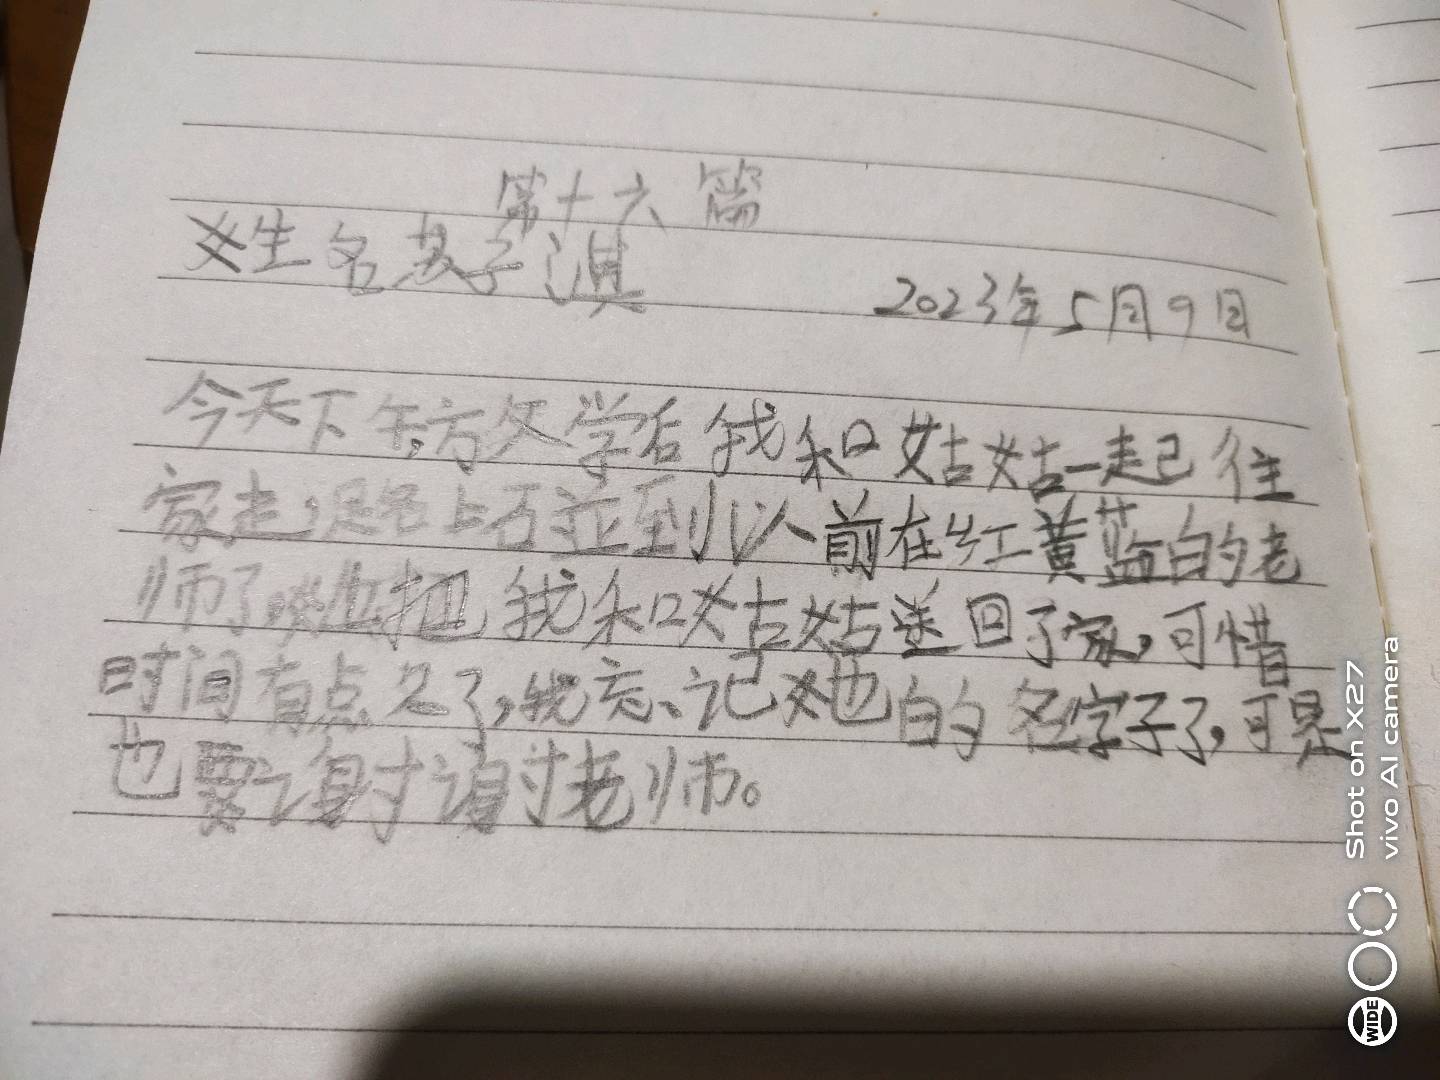 第十六篇
姓名苏子淇
2023年5月9日
今天下午,方欠学后我和姑姑一起往
家走,路上碰到以前在红黄蓝的老
师了,她把我和姑姑送回了家,可惜
时间有点久了,我忘记她的名字了,可是
也要谢谢老师。
Shot on X27
vivo AI camera
WIDE